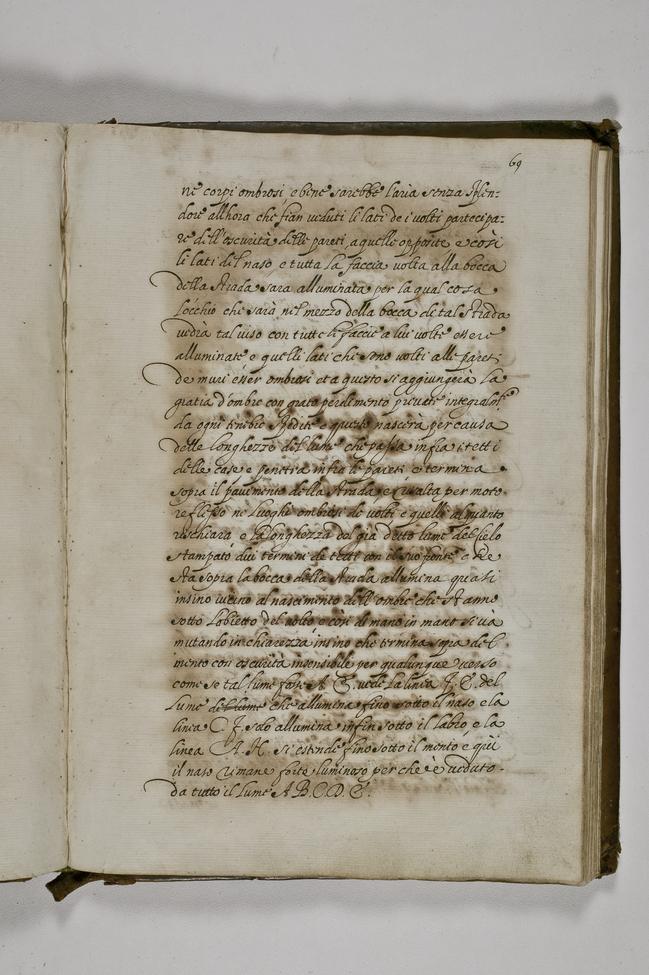 69
ne corpi ombrosi, e bene sarebbe l'aria senza splen=
dore all'hora che sian veduti li lati de i volti partecipa=
re dell'oscurità delle pareti, a quelle opposite e così
li lati del naso, e tutta la faccia volta alla bocca
della strada sara alluminata per la qual cosa
locchio che sarà nel mezzo della bocca di tal strada
vedrà tal viso con tutte le faccie a lui volte essere
alluminate e quelli lati che sono volti alle pareti
de muri esser ombrosi et a questo si aggiungerà la
gratia d'ombre con grato perdimento private integralm.te
da ogni termine spedito e questo nascerà per causa
delle longhezze del lume che passa infra i tetti
delle case e penetra infra le pareti e termina
sopra il pavimento della strada, e risalta per moto
reflesso ne luoghi ombrosi de volti e quelli alquanto
rischiara, e la longhezza del gia detto lume del cielo
stampato dui termini de tetti con il suo fronte che
sta sopra la bocca della strada allumina quasi
insino vicino al nascimento dell'ombre che stanno
sotto l'obietto del volto e così di mano in mano si và
mutando in chiarezza insino che termina sopra del
mento con oscurità insensibile per qualunque verso
come se tal lume fosse A. E. vede la linea F. E. del
lume del lume che allumina fino sotto il naso e la
linea C. F. solo allumina infin sotto il labro, e la
linea A. H. si estende fino sotto il mento e qui
il naso rimane forte luminoso perche è veduto
da tutto il lume A B. C. D. E.